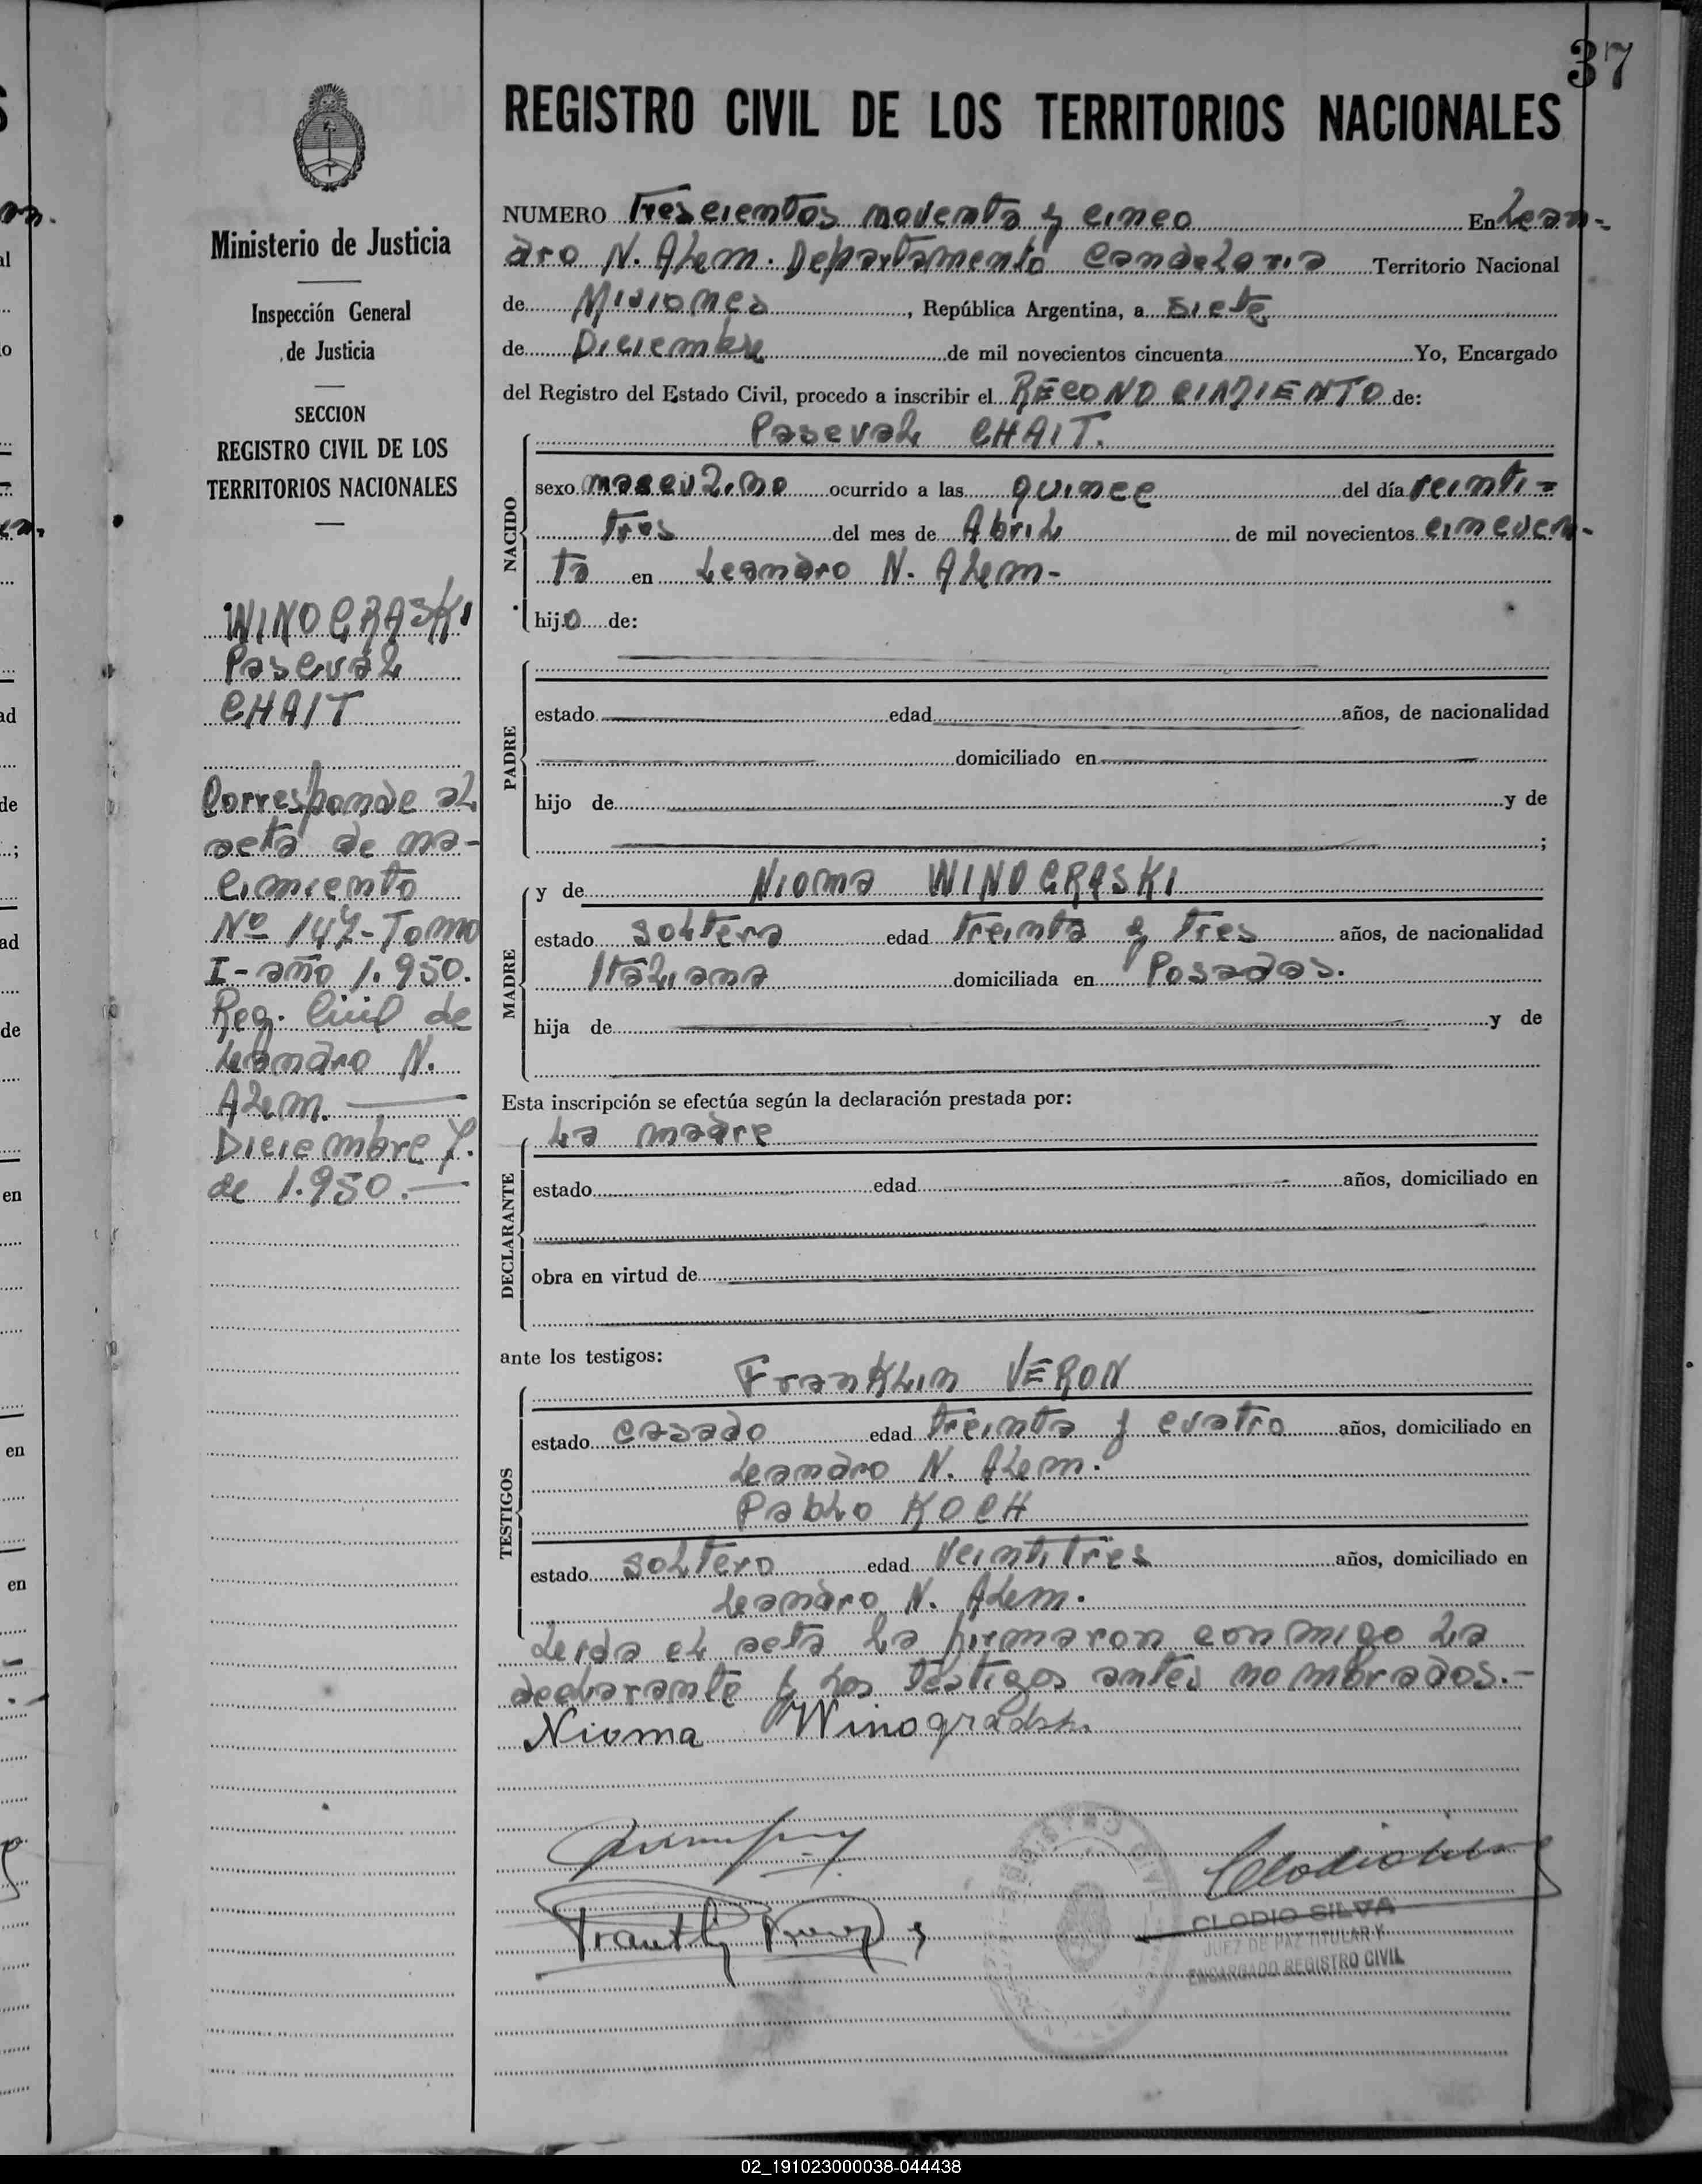 37
REGISTRO CIVIL DE LOS TERRITORIOS NACIONALES
Ministerio de Justicia
Inspección General
de Justicia
SECCION
REGISTRO CIVIL DE LOS
TERRITORIOS NACIONALES
WINOGRASKI
Pascual
CHAIT
Corresponde al
acta de na-
cimiento
Nº 147-Tomo
I-año 1.950.
Reg. Civil de
Leandro N.
Alem.
Diciembre 7.
de 1.950.
NUMERO Trescientos noventa y cinco En Lean-
dro N. Alem. Departamento Candelaria Territorio Nacional
de Misiones, República Argentina, a siete
de Diciembre de mil novecientos cincuenta Yo, Encargado
del Registro del Estado Civil, procedo a inscribir el RECONOCIMIENTO de:
Pascual CHAIT.
NACIDO
sexo masculino ocurrido a las quince del día veinti-
tres del mes de Abril de mil novecientos cincuen-
ta en Leandro N. Alem-
hijo de:
PADRE
estado edad años, de nacionalidad
domiciliado en
hijo de y de
;
MADRE
y de Nioma WINOGRASKI
estado soltera edad treinta y tres años, de nacionalidad
Italiana domiciliada en Posadas.
hija de y de
Esta inscripción se efectúa según la declaración prestada por:
La madre
DECLARANTE
estado edad años, domiciliado en
obra en virtud de
ante los testigos:
TESTIGOS
Franklin VERON
estado casado edad treinta y cuatro años, domiciliado en
Leandro N. Alem.
Pablo KOCH
estado soltero edad veintitres años, domiciliado en
Leandro N. Alem.
Leida el acta la firmaron conmigo la
declarante y los testigos antes nombrados.-
Nioma Winogradski
CLODIO SILVA
JUEZ DE PAZ TITULAR Y
ENCARGADO REGISTRO CIVIL
02_191023000038-044438